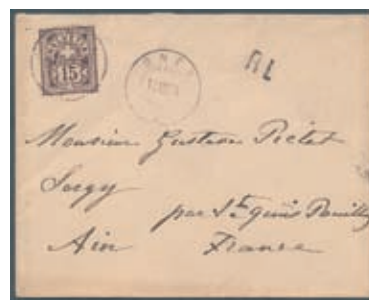 15
RL
Monsieur Gustave Pictet
Sergy
par St Genis Pouilly
Ain France